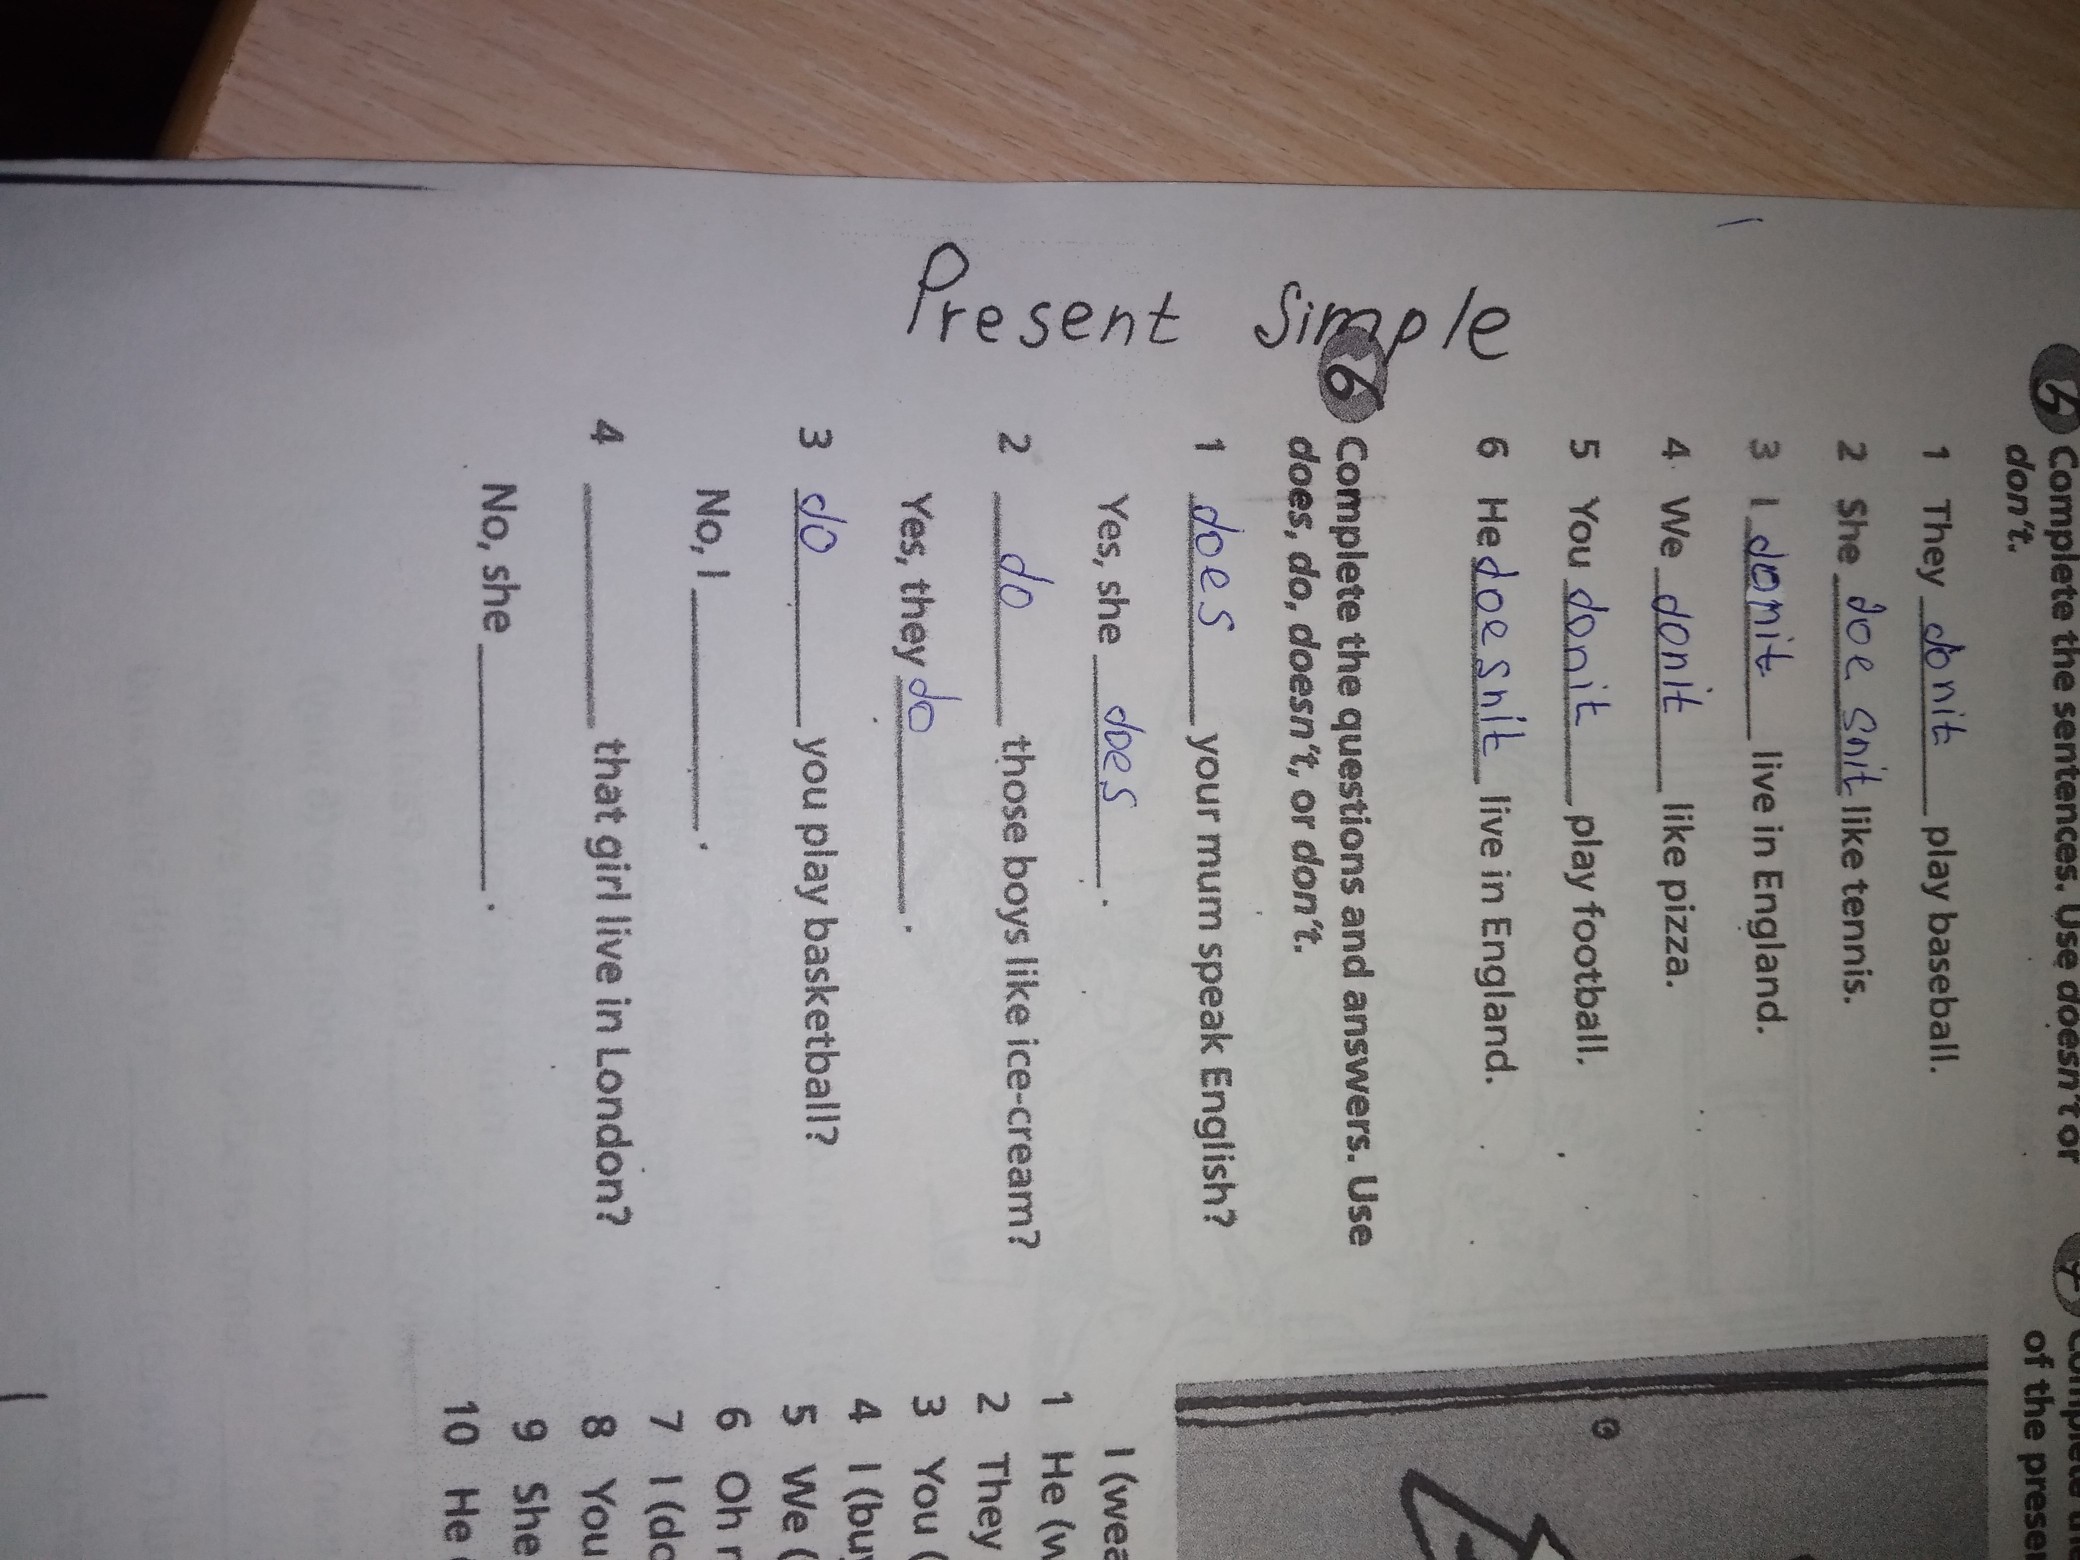 6 Complete the sentences. Use doesn't or
don't.
1 They donit play baseball.
2 She doesnit like tennis.
3 I donit live in England.
4 We donit like pizza.
5 You donit play football.
6 He doesnit live in England.
Present Simple
6 Complete the questions and answers. Use
does, do, doesn't, or don't.
1 does your mum speak English?
Yes, she does.
2 do those boys like ice-cream?
Yes, they do.
3 do you play basketball?
No, I ________.
4 ________ that girl live in London?
No, she ________.
of the
I
1 He
2 They
3 You
4 I
5 We
6 Oh
7 I
8 You
9 She
10 He